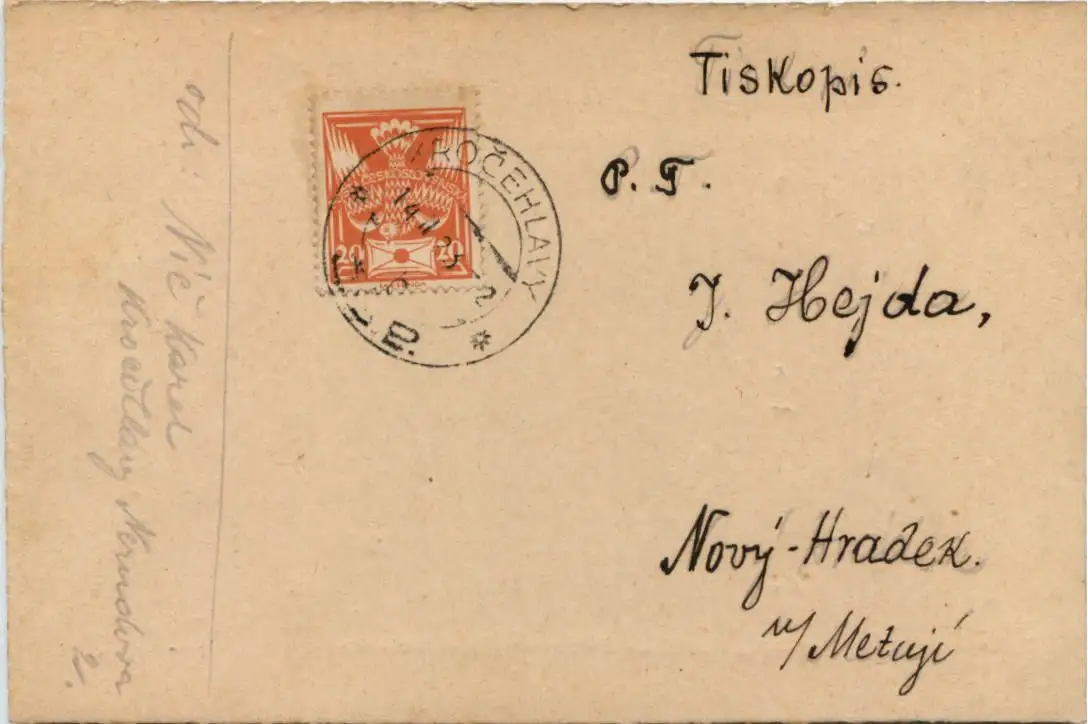 Tiskopis.
P. T.
J. Hejda,
Nový-Hradek.
n/ Metují
ČESKOSLOVENSK
20 20
KROČEHLAVY
14 II 25
* *
od: Nič Karel
Kročehlavy Nerudova
2.